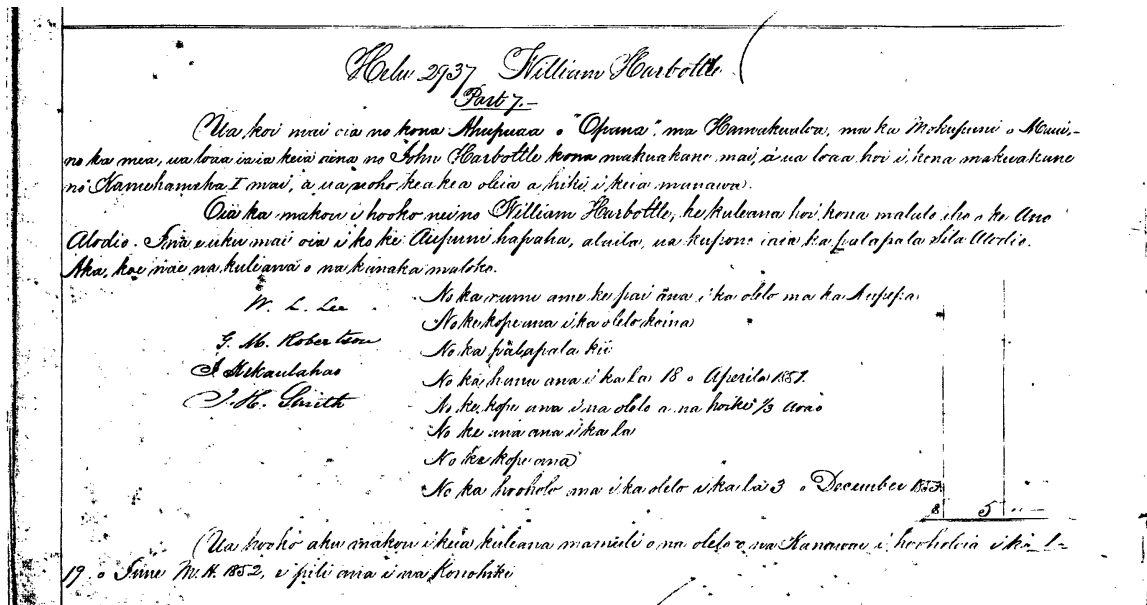 Helu 2937 William Harbottle
Part 7.—
Ua koi mai oia no kona Ahupuaa o "Opana", ma Hamakualoa, ma ka Mokupuni o Maui,
no ka mea, ua loaa iaia keia aina no John Harbottle kona makuakane mai, a ua loaa hoi i kona makuakane
no Kamehameha I mai, a ua noho keakea oleia a hiki i keia manawa.
Oia ka makou i hooko nei no William Harbottle, he kuleana hoi kona malalo iho o ke Ano
Alodio. Ina e uku mai oia i ko ke Aupuni hapaha, alaila, ua kupono iaia ka palapala Sila Alodio.
Aka, koe nae na kuleana o na kanaka maloko.
W. L. Lee
G. M. Robertson
J Kekaulahao
J. H. Smith
No ka rumi ame ke pai ana i ka olelo ma ka Nupepa
No ke kope ana i ka olelo koina
No ka palapala kii
No ka hana ana i ka la 18 o Aperila 1851.
No ke kope ana i na olelo a na hoike 1/3 Aoao
No ke ana ana i ka la
No ke kope ana
No ka hooholo ana i ka olelo i ka la 3 o December 1853
8 5 "
Ua hooko aku makou i keia kuleana mamuli o na olelo o na Kanawai i hooholoia i ka la
19 o June M.H. 1852, e pili ana i na Konohiki